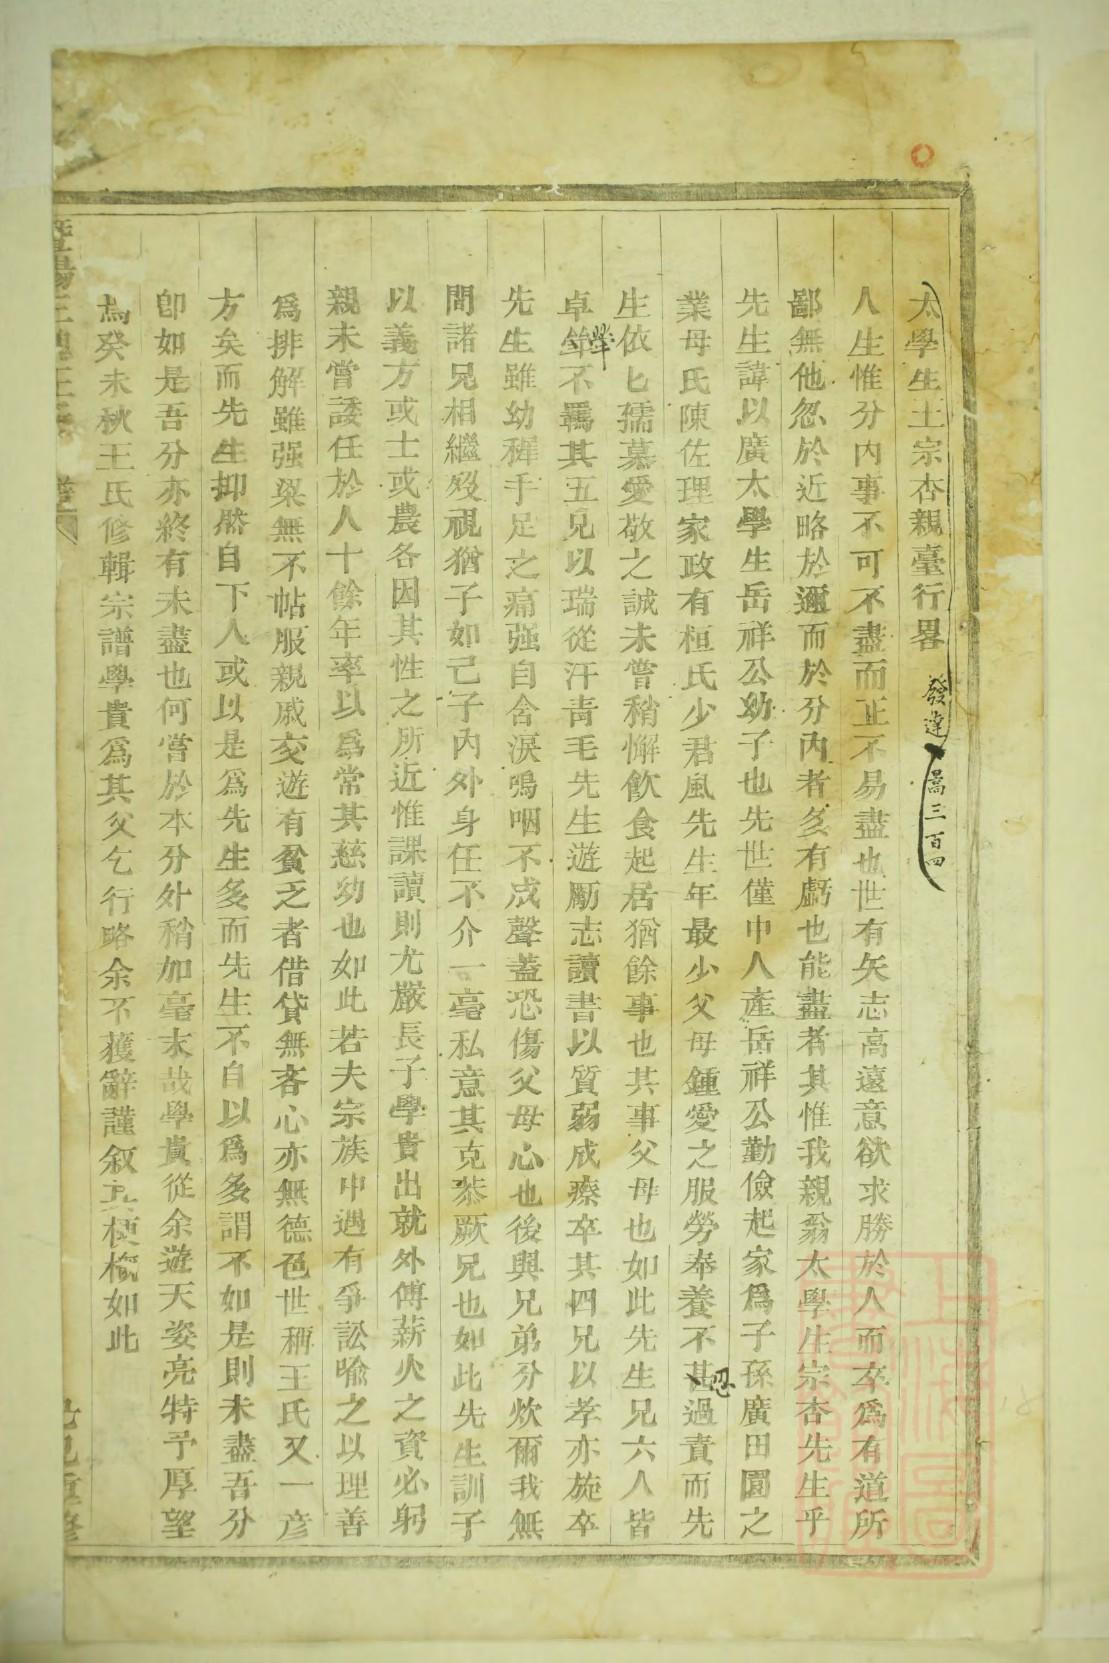 太學生王宗杏親臺行畧 發達 暠三百四
人生惟分內事不可不盡而正不易盡也世有矢志高遠意欲求勝於人而卒爲有道所
鄙無他忽於近略於邇而於分內者多有虧也能盡者其惟我親翁太學生宗杏先生乎
先生諱以廣太學生岳祥公幼子也先世僅中人產岳祥公勤儉起家爲子孫廣田園之
業母氏陳佐理家政有桓氏少君風先生年最少父母鍾愛之服勞奉養不甚忍過責而先
生依匕孺慕愛敬之誠未嘗稍懈飲食起居猶餘事也其事父母也如此先生兄六人皆
卓犖不羈其五兄以瑞從汗青毛先生遊勵志讀書以質弱成瘵卒其四兄以孝亦旋卒
先生雖幼稺手足之痛强自含淚嗚咽不成聲蓋恐傷父母心也後與兄弟分炊爾我無
間諸兄相繼歿視猶子如己子內外身任不介一毫私意其克恭厥兄也如此先生訓子
以義方或士或農各因其性之所近惟課讀則尤嚴長子學貴出就外傅薪火之資必躬
親未嘗諉任於人十餘年率以爲常其慈幼也如此若夫宗族中遇有爭訟喻之以理善
爲排解雖强梁無不帖服親戚交遊有貧乏者借貸無吝心亦無德色世稱王氏又一彥
方矣而先生抑然自下人或以是爲先生多而先生不自以爲多謂不如是則未盡吾分
卽如是吾分亦終有未盡也何嘗於本分外稍加毫末哉學貴從余遊天姿亮特予厚望
焉癸未秋王氏修輯宗譜學貴爲其父乞行略余不獲辭謹叙其梗槪如此